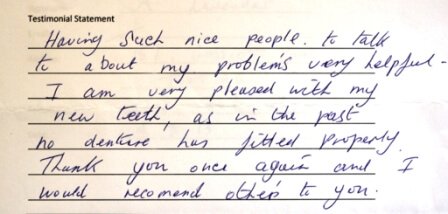 Testimonial Statement
Having such nice people. to talk
to about my problem's very helpful -
I am very pleased with my
new teeth, as in the past
no denture has fitted properly.
Thank you once again and I
would recomend other's to you.